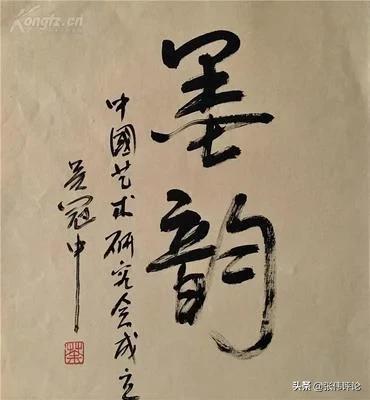 墨韵
中國艺术研究会成立
吴冠中
荼
Kongfz.cn
头条 @张伟评论